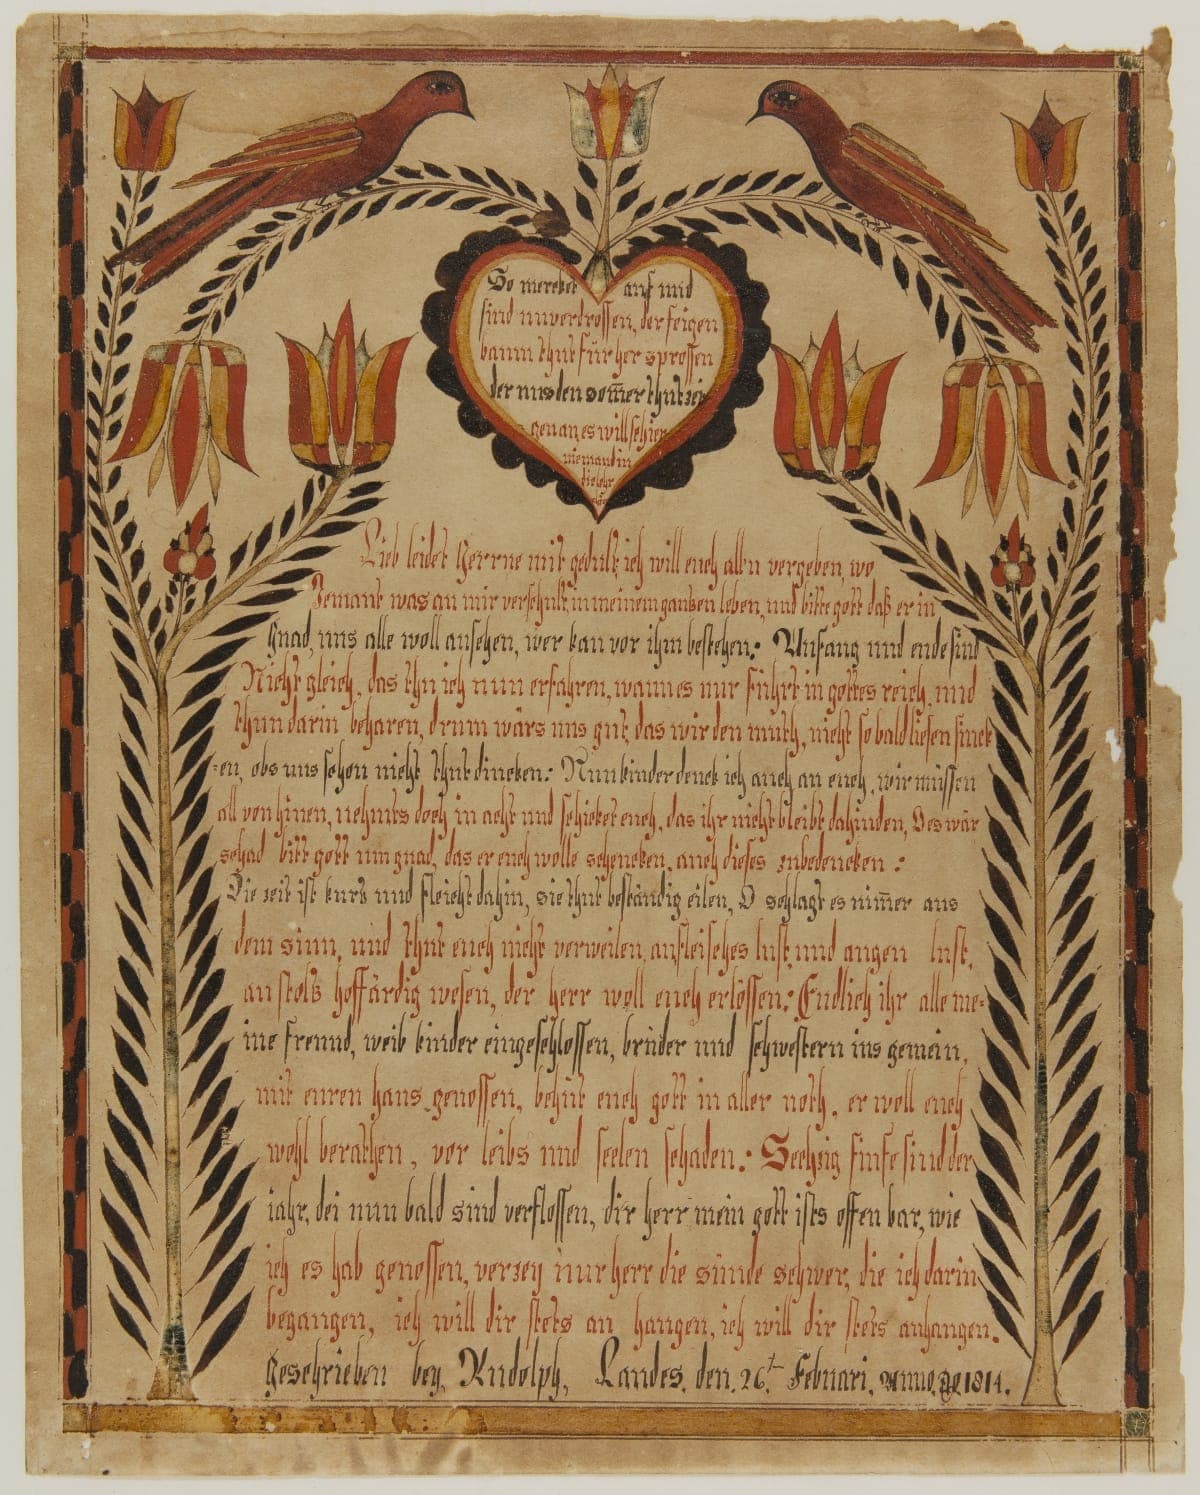 So mercket auf und
sind unverdrossen, der feigen
baum thut fur her sprossen
der uns den som̄er thut zei
genan, es will schier
niemand in
die lehr
Lieb leidet Herrne mit gedult, ich will euch allen vergeben, wo
Jemant was an mir versehult, in meinem gantzen leben, und bitte gott daß er in
gnad, uns alle woll ansehen, wer kan vor ihm bestehen: Anfang und ende sind
Nicht gleich, das thu ich nun erfahren, wann es nur führt in gottes reich, und
thun darin beharen, drum wärs uns gut, das wir den muth, nicht so bald liesen sinck
=en, obs uns schon nicht thut dincken: Nun kinder denck ich auch an euch, wir müssen
all von hinen, nehmts doch in acht und schicket euch, das ihr nicht bleibt dahinden, Des wär
schad bitt gott um gnad, das er euch wolle schencken, auch dieses zubedencken :
Die zeit ist kurtz und fleicht dahin, sie thut beständig eilen, O schlagt es nim̄er aus
dem sinn, und thut euch nicht verweilen, an fleisches lust, und augen lust,
an stoltz hoffärdig wesen, der herr woll euch erlössen: Endlich ihr alle me=
ine freund, weib kinder eingeschlossen, brüder und schwestern ins gemein,
mit euren haus genossen, behüt euch gott in aller noth, er woll euch
wohl berathen, vor leibs und seelen schaden: Sechzig fünfe sind der
jahr, dei nun bald sind verflossen, dir herr mein gott ists offenbar, wie
ich es hab genossen, verzey nur herr die sünde schwer, die ich darin
begangen, ich will dir stets an hangen, ich will dir stets anhangen.
Geschrieben bey, Rudolph, Landes, den, 26t, Febuari, Anno, 1814.